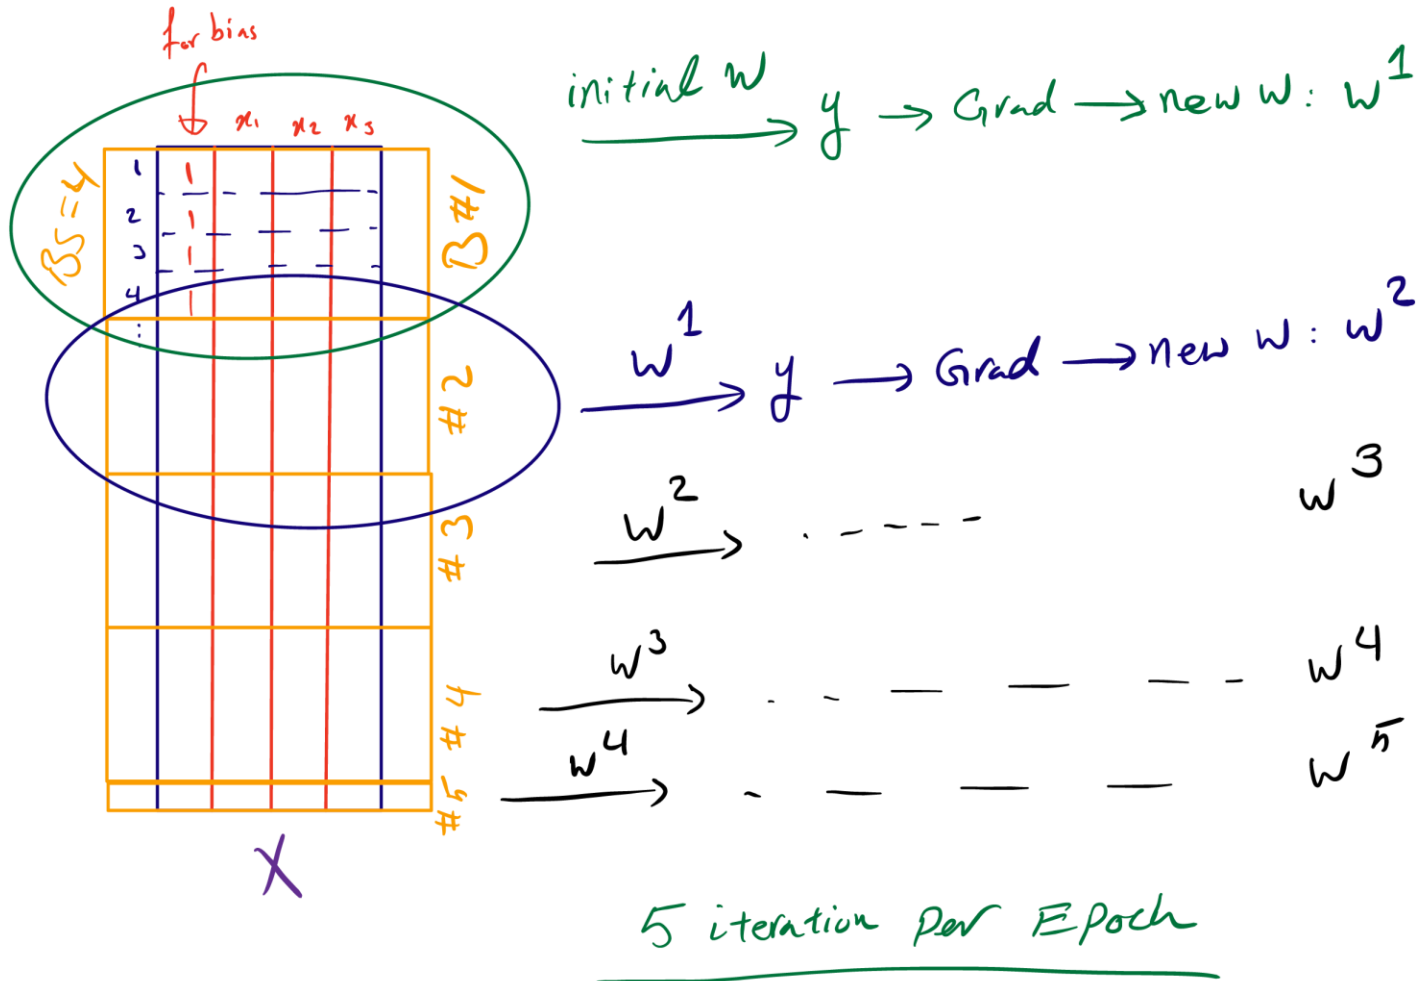 for bias
x₁ x₂ x₃
BS=4
1 1
2 1
3 1
4 1
:
B#1
initial W y → Grad → new W: W¹
#2
W¹ y → Grad → new W: W²
#3
W² W³
#4
W³ W⁴
#5
W⁴ W⁵
X
5 iteration per Epoch